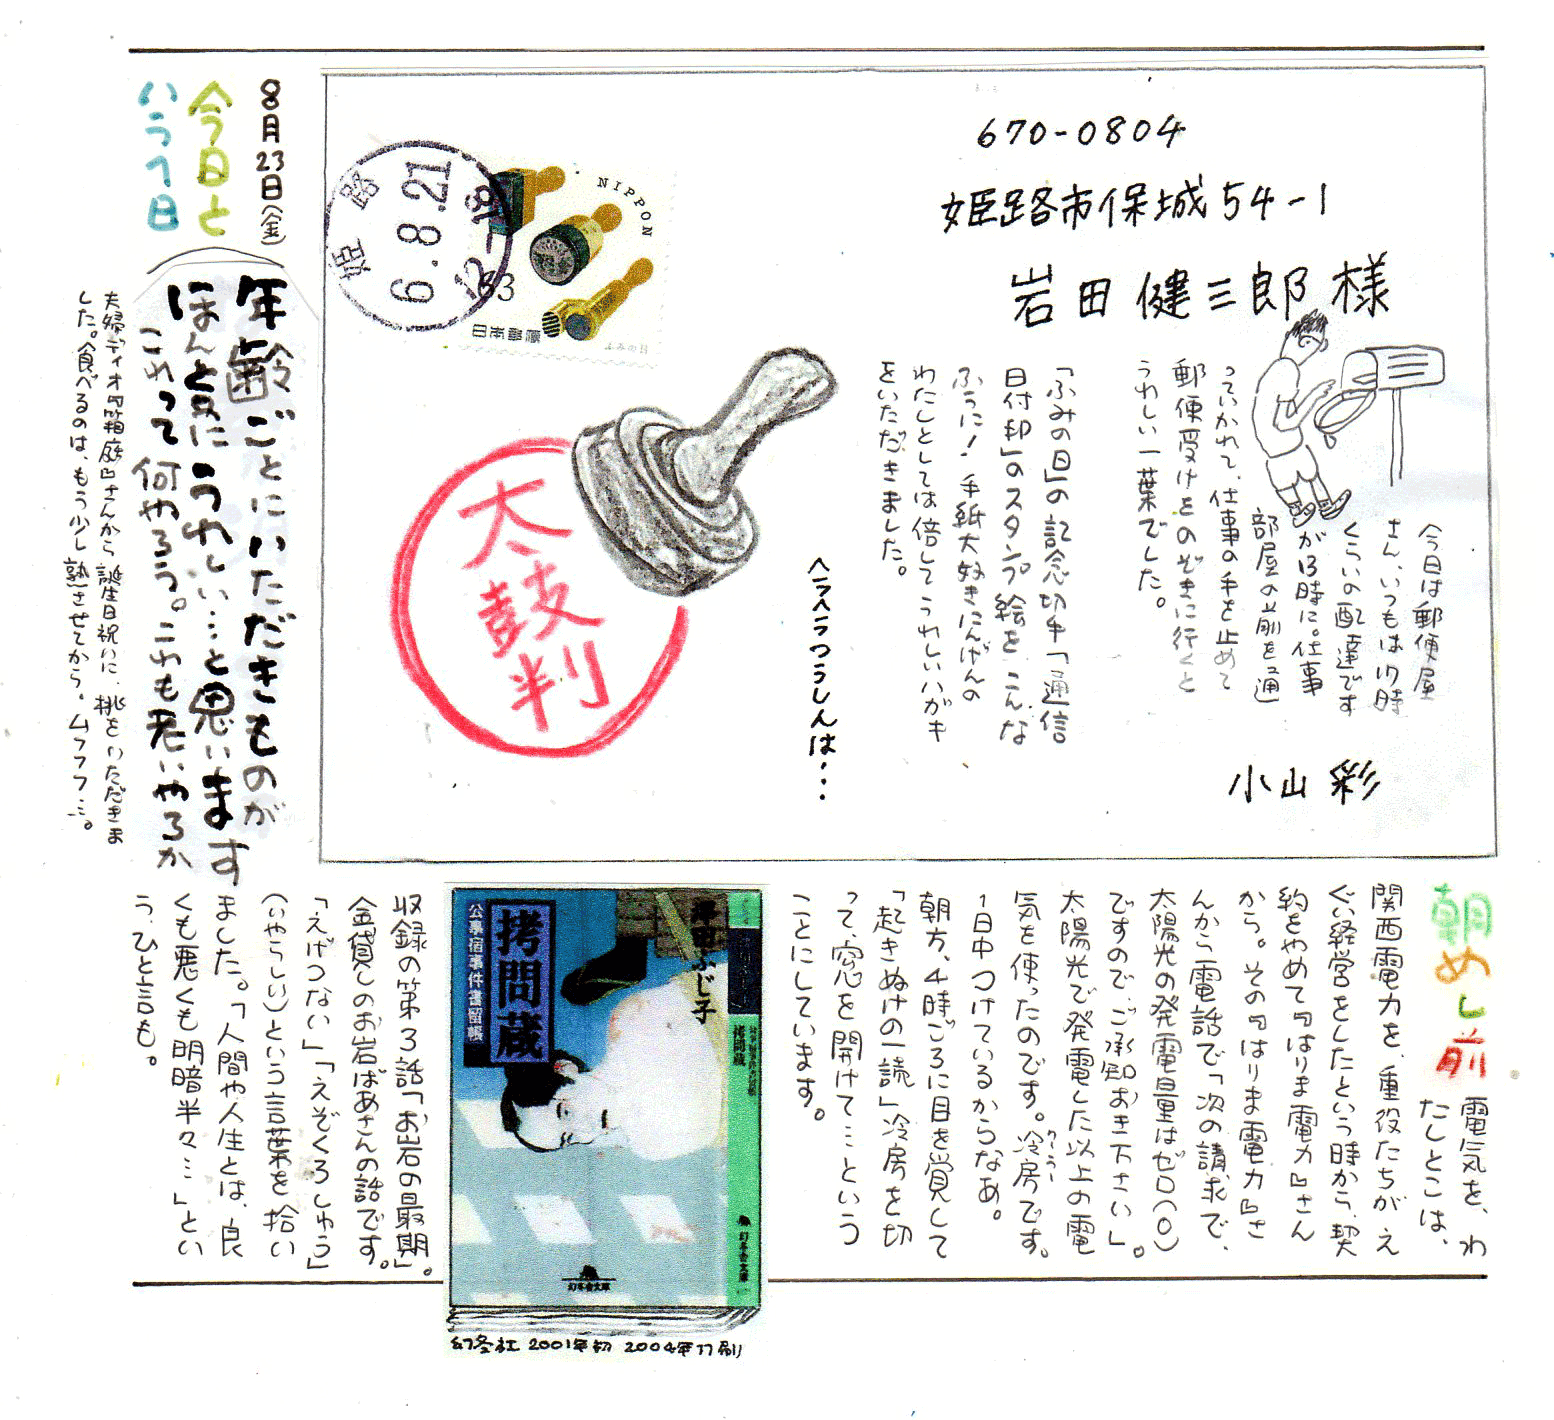 8月23日(金)
今日と
いう1日
年齢ごとにいただきものが
ほんと員にうれしい…と思います
これって何やろう。これも老いやろか
夫婦ディオ『箱庭』さんから誕生日祝いに、桃をいただきま
した。食べるのは、もう少し熟させてから。ムフフフ…。
670-0804
姫路市保城54-1
岩田健三郎様
今日は郵便屋
さん、いつもは17時
くらいの配達です
が13時に。仕事
部屋の前を通
っていかれて、仕事の手を止めて
郵便受けをのぞきに行くと
うれしい一葉でした。
「ふみの日」の記念切手「通信
日付印」のスタンプ絵をこんな
ふうに!手紙大好きにんげんの
わたしとしては倍してうれしいハガキ
をいただきました。
小山 彩
ヘラヘラつうしんは…
太鼓判
姫路
6.8.21
12-18
NIPPON
63
日本郵便
ふみの日
朝めし前
電気を、わ
たしとこは、
関西電力を、重役たちがえ
ぐい経営をしたという時から、契
約をやめて『はりま電力』さん
から。その『はりま電力』さ
んから電話で「次の請求で、
太陽光の発電量はゼロ(0)
ですので、ご承知おき下さい」。
太陽光で発電した以上の電
気を使ったのです。冷房です。
クーラー
1日中つけているからなあ。
朝方、4時ごろに目を覚して
「起きぬけの一読」冷房を切
って、窓を開けて…という
ことにしています。
澤田ふじ子
拷問蔵
公事宿事件書留帳
拷問蔵
幻冬舎文庫
幻冬舎文庫
幻冬社 2001年初 2004年17刷
収録の第3話「お岩の最期」。
金貸しのお岩ばあさんの話です。
「えげつない」「えぞくろしゅう」
(いやらしい)という言葉を拾い
ました。「人間や人生とは、良
くも悪くも明暗半々…」とい
う、ひと言も。